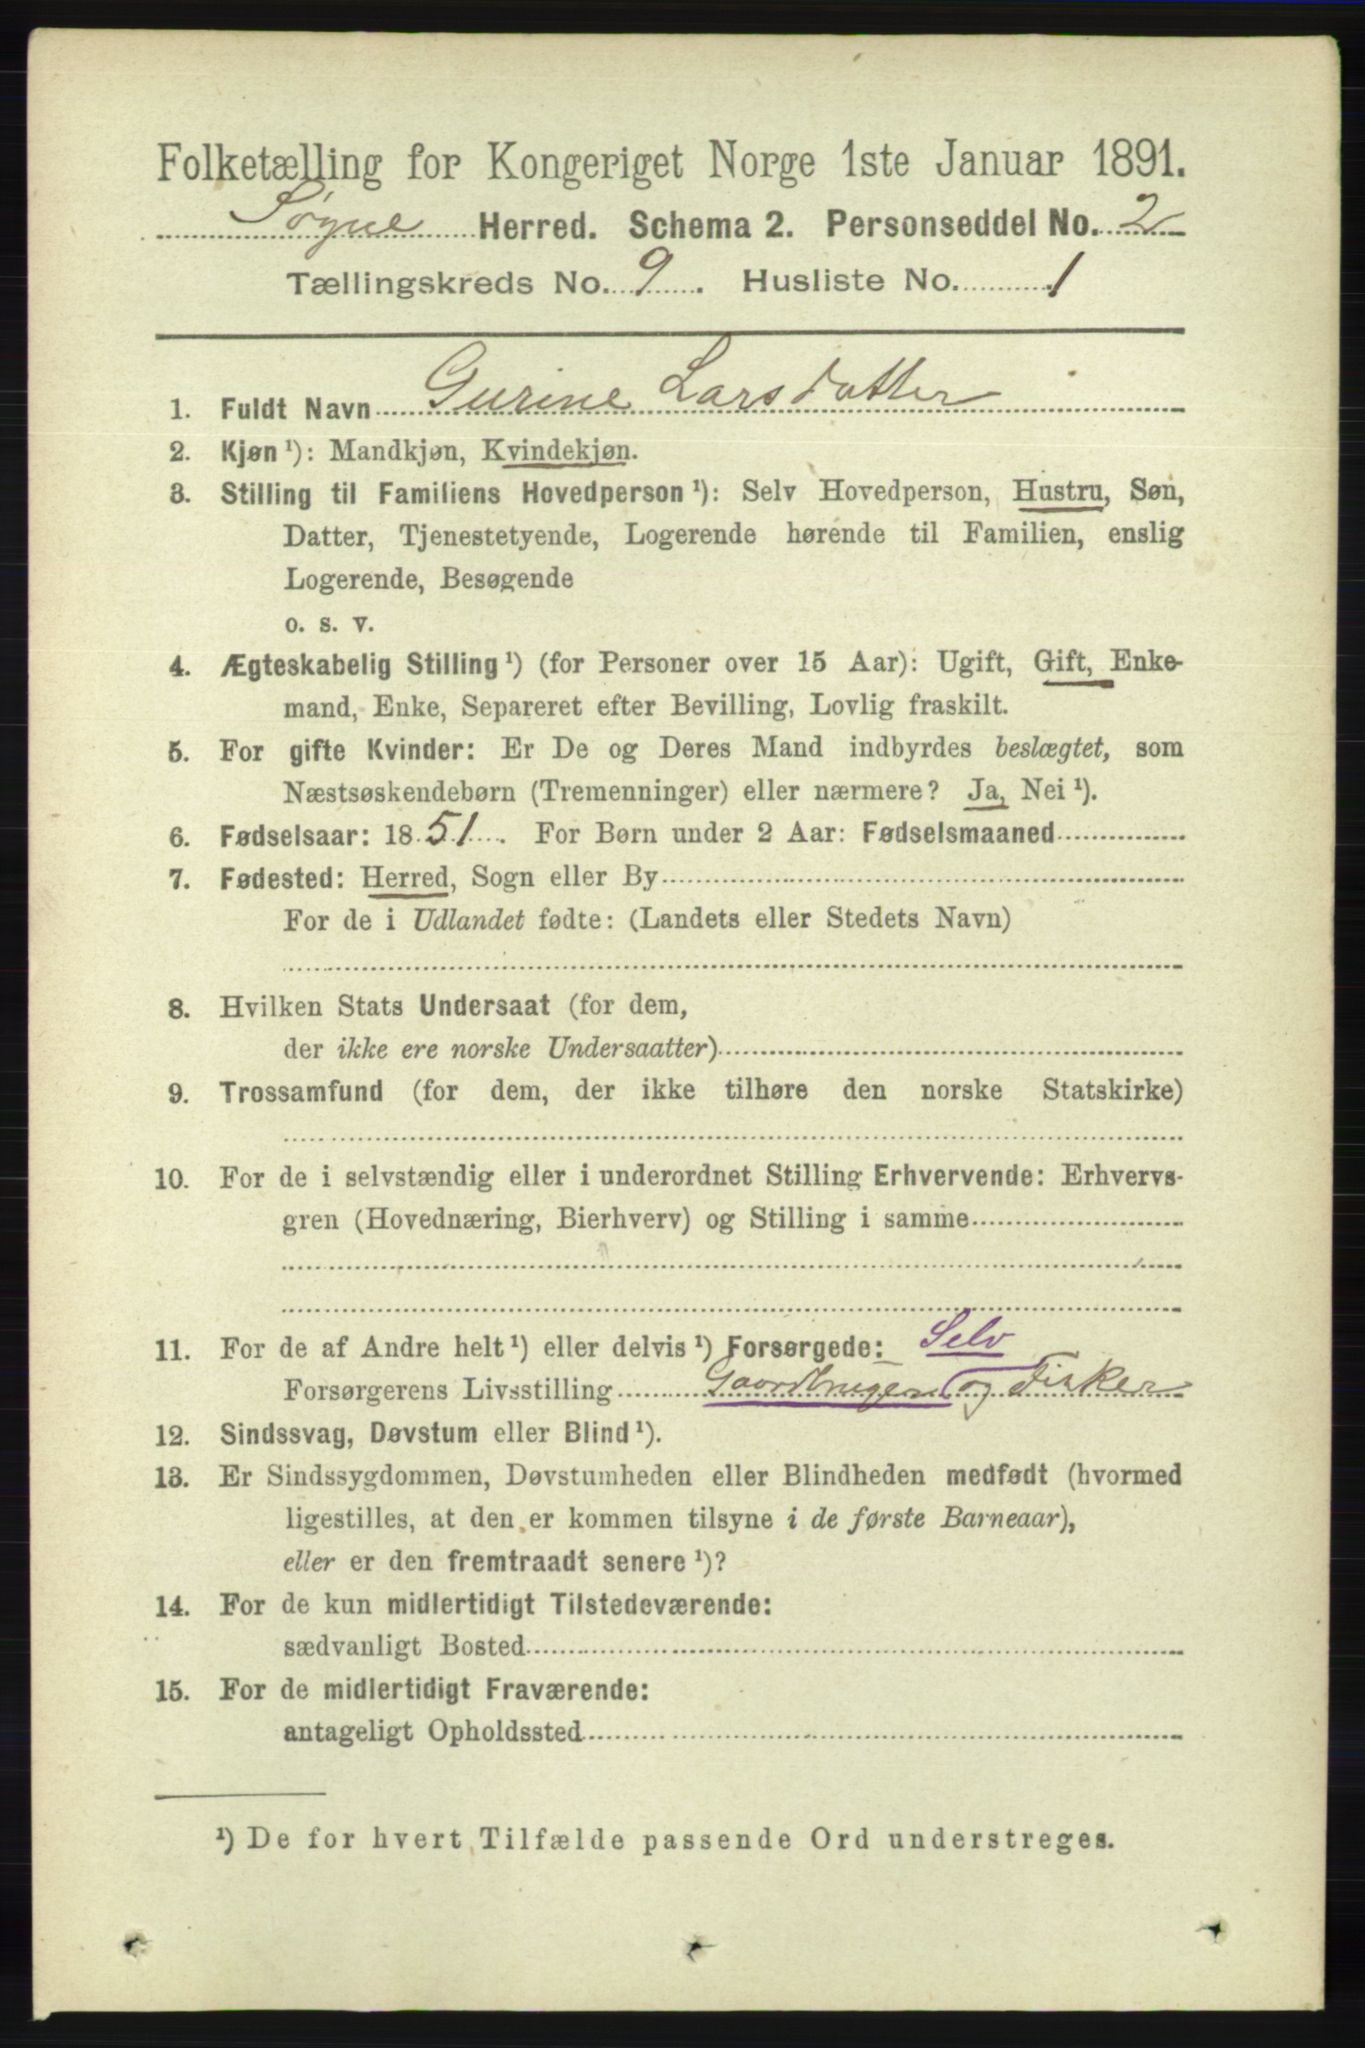 Folketælling for Kongeriget Norge 1ste Januar 1891.
Søgne Herred. Schema 2. Personseddel No. 2
Tællingskreds No. 9. Husliste No. 1
1. Fuldt Navn Gurine Larsdatter
2. Kjøn ¹): Mandkjøn, Kvindekjøn.
3. Stilling til Familiens Hovedperson ¹): Selv Hovedperson, Hustru, Søn,
Datter, Tjenestetyende, Logerende hørende til Familien, enslig
Logerende, Besøgende
o. s. v.
4. Ægteskabelig Stilling ¹) (for Personer over 15 Aar): Ugift, Gift, Enke-
mand, Enke, Separeret efter Bevilling, Lovlig fraskilt.
5. For gifte Kvinder: Er De og Deres Mand indbyrdes beslægtet, som
Næstsøskendebørn (Tremenninger) eller nærmere? Ja, Nei ¹).
6. Fødselsaar: 1851. For Børn under 2 Aar: Fødselsmaaned
7. Fødested: Herred, Sogn eller By
For de i Udlandet fødte: (Landets eller Stedets Navn)
8. Hvilken Stats Undersaat (for dem,
der ikke ere norske Undersaatter)
9. Trossamfund (for dem, der ikke tilhøre den norske Statskirke)
10. For de i selvstændig eller i underordnet Stilling Erhvervende: Erhvervs-
gren (Hovednæring, Bierhverv) og Stilling i samme
11. For de af Andre helt ¹) eller delvis ¹) Forsørgede: Selv
Forsørgerens Livsstilling Gaardbruger og Fisker
12. Sindssvag, Døvstum eller Blind ¹).
13. Er Sindssygdommen, Døvstumheden eller Blindheden medfødt (hvormed
ligestilles, at den er kommen tilsyne i de første Barneaar),
eller er den fremtraadt senere ¹)?
14. For de kun midlertidigt Tilstedeværende:
sædvanligt Bosted
15. For de midlertidigt Fraværende:
antageligt Opholdssted
¹) De for hvert Tilfælde passende Ord understreges.